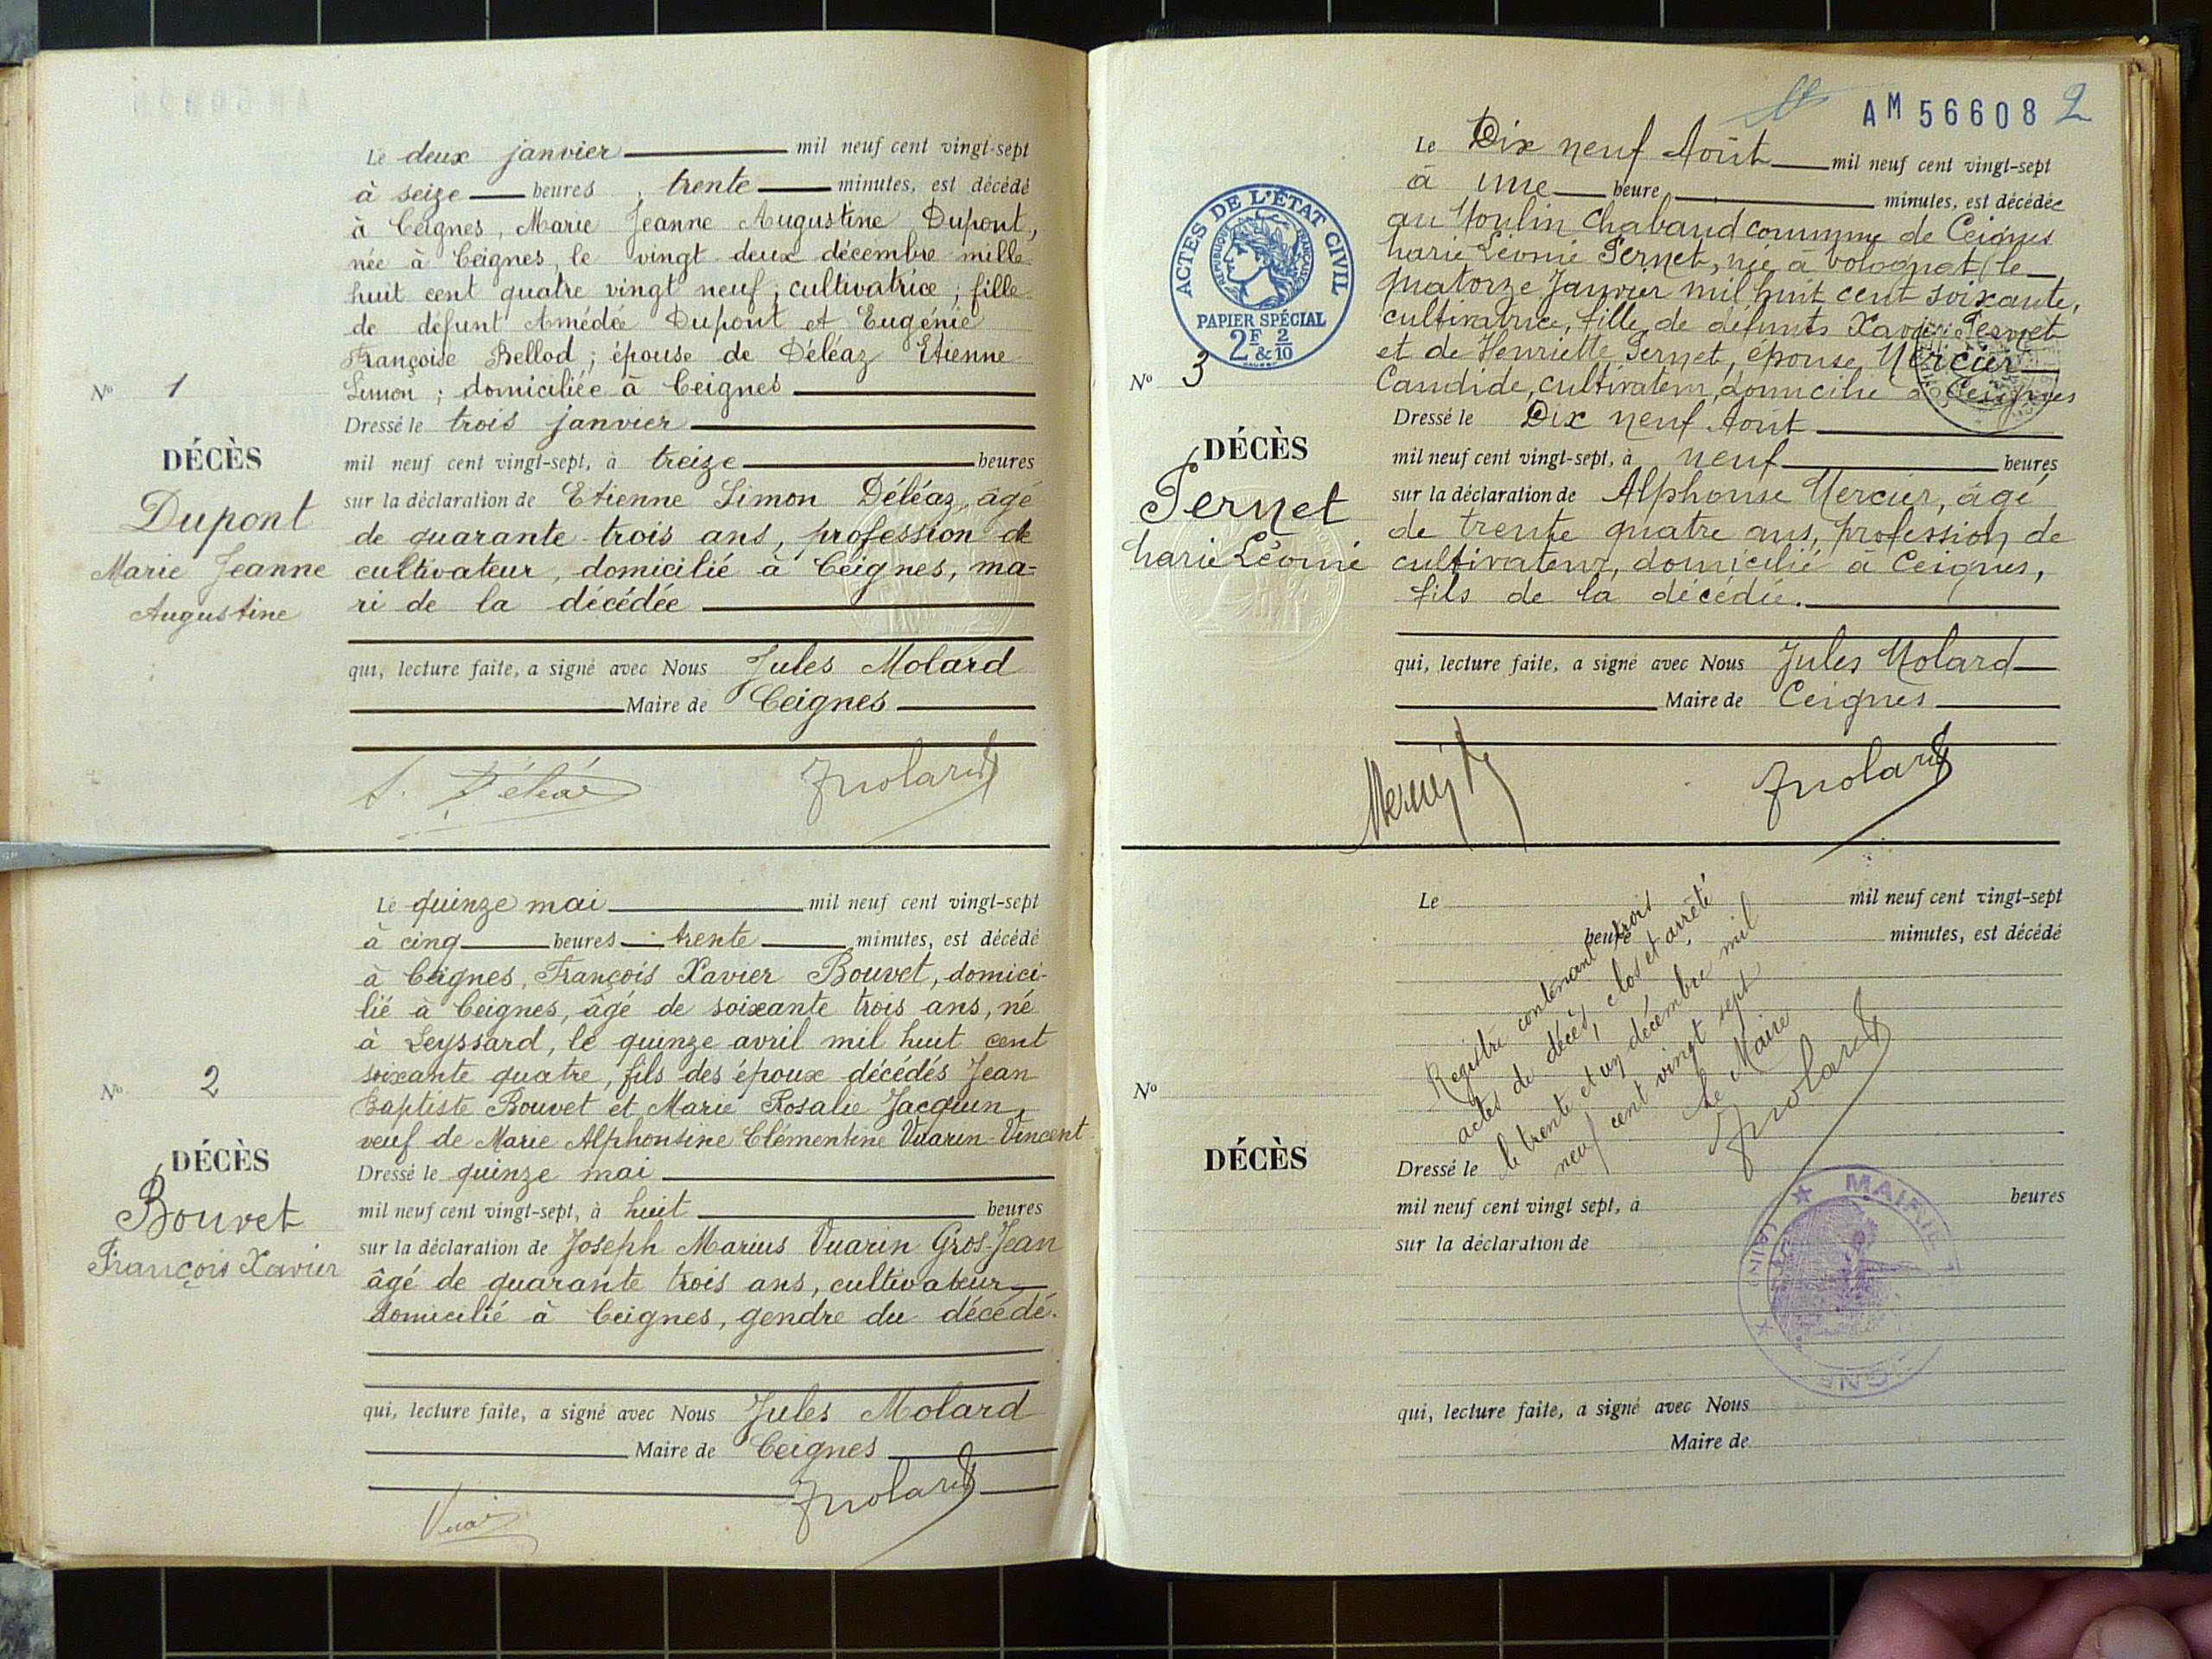 Le deux janvier mil neuf cent vingt-sept
à seize heures, trente minutes, est décédé
à Ceignes, Marie Jeanne Augustine Dupont,
née à Ceignes, le vingt deux décembre mille
huit cent quatre vingt neuf; cultivatrice; fille
de défunt Amédée Dupont et Eugénie
Françoise Bellod; épouse de Déléaz Etienne
Simon; domiciliée à Ceignes
Dressé le trois janvier
mil neuf cent vingt-sept, à treize heures
sur la déclaration de Etienne Simon Déléaz, âgé
de quarante-trois ans, profession de
cultivateur, domicilié à Ceignes, ma=
ri de la décédée
qui, lecture faite, a signé avec Nous Jules Molard
Maire de Ceignes
S. Déléaz
JMolard
No 1
DÉCÈS
Dupont
Marie Jeanne
Augustine
Le quinze mai mil neuf cent vingt-sept
à cinq heures trente minutes, est décédé
à Ceignes, François Xavier Bouvet, domici-
lié à Ceignes, âgé de soixante trois ans, né
à Leyssard, le quinze avril mil huit cent
soixante quatre, fils des époux décédés Jean
Baptiste Bouvet et Marie Rosalie Jacquin,
veuf de Marie Alphonsine Clémentine Vuarin-Vincent
Dressé le quinze mai
mil neuf cent vingt-sept, à huit heures
sur la déclaration de Joseph Marius Vuarin Gros-Jean
âgé de quarante trois ans, cultivateur
domicilié à Ceignes, gendre du décédé.
qui, lecture faite, a signé avec Nous Jules Molard
Maire de Ceignes
JMolard
No 2
DÉCÈS
Bouvet
François Xavier
AM 56608 2
Le Dix neuf Août mil neuf cent vingt-sept
à une heure minutes, est décédée
au Moulin Chabaud commune de Ceignes
Marie Léonie Pernet, née à Volognat, le
quatorze Janvier mil huit cent soixante,
cultivatrice, fille de défunts Xavier Pernet
et de Henriette Pernet, épouse Mercier
Candide, cultivateur, domicilié à Ceignes
Dressé le Dix neuf Août
mil neuf cent vingt-sept, à neuf heures
sur la déclaration de Alphonse Mercier, âgé
de trente quatre ans, profession de
cultivateur, domicilié à Ceignes,
fils de la décédée.
qui, lecture faite, a signé avec Nous Jules Molard
Maire de Ceignes
JMolard
ACTES DE L'ÉTAT CIVIL
RÉPUBLIQUE FRANÇAISE
PAPIER SPÉCIAL
2F & 2/10
No 3
DÉCÈS
Pernet
Marie Léonie
Le mil neuf cent vingt-sept
heure minutes, est décédé
Registre contenant trois
actes de décès, clos et arrêté
le trente et un décembre mil
neuf cent vingt sept
Le Maire
JMolard
No
DÉCÈS
Dressé le
mil neuf cent vingt sept, à heures
sur la déclaration de
qui, lecture faite, a signé avec Nous
Maire de
MAIRIE